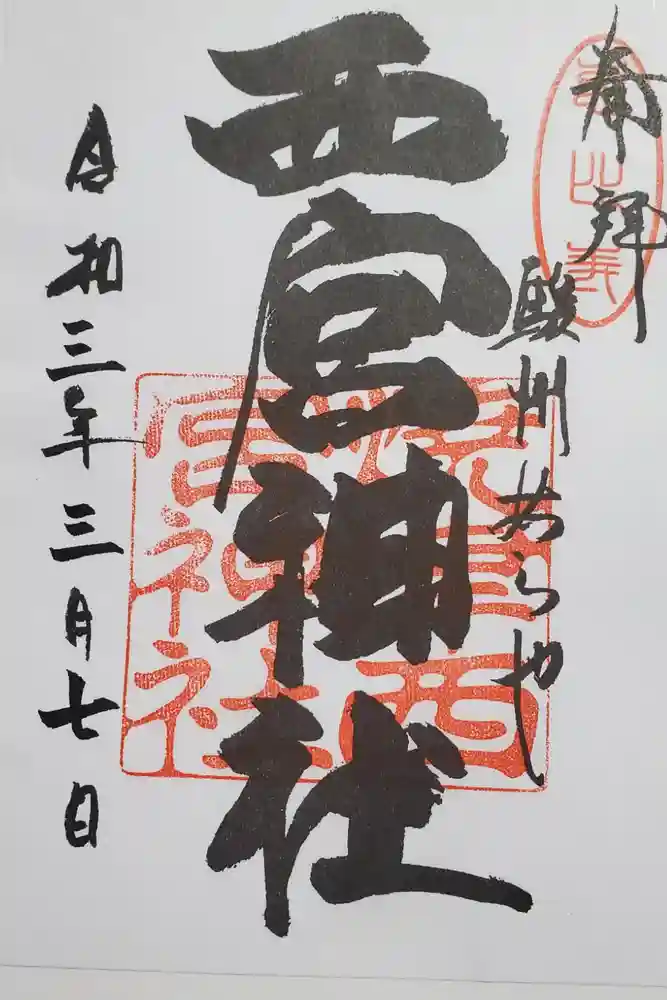 奉拝
駿州あらや
西宮神社
令和三年三月七日